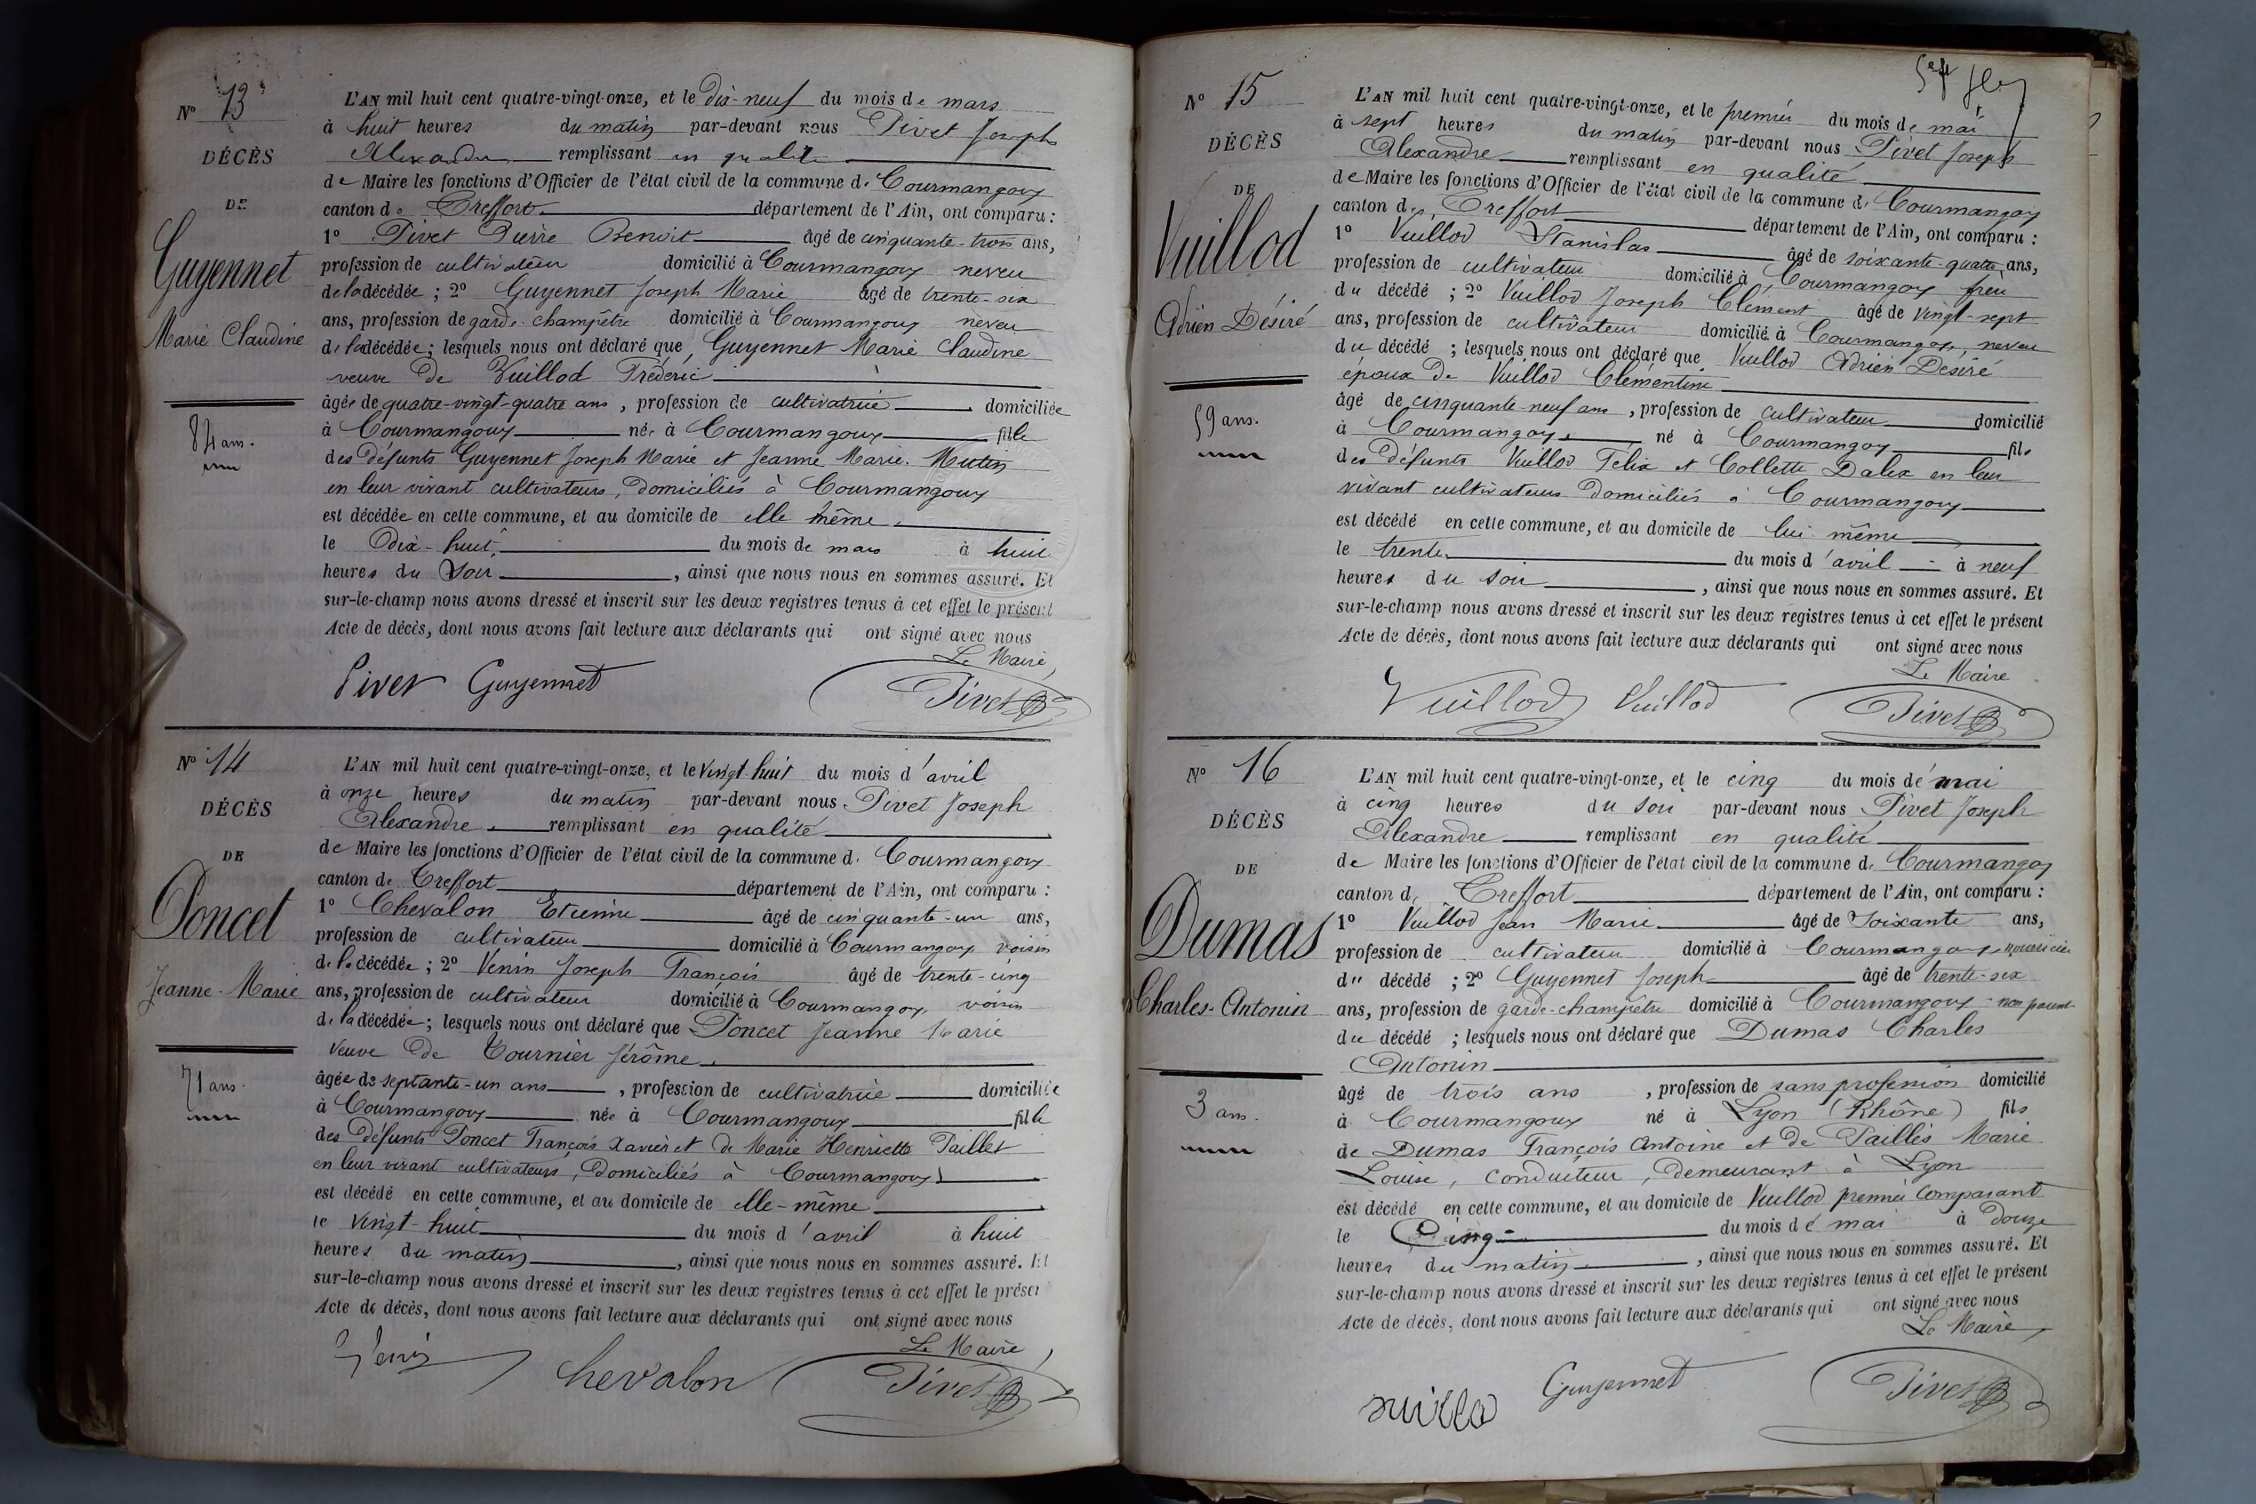 N° 13
DÉCÈS
DE
Guyennet
Marie Claudine
84 ans.
L'AN mil huit cent quatre-vingt-onze, et le Dix-neuf du mois de mars
à huit heures du matin par-devant nous Pivet Joseph
Alexandre remplissant en qualité
de Maire les fonctions d'Officier de l'état civil de la commune de Courmangoux
canton de Treffort département de l'Ain, ont comparu :
1° Pivet Pierre Benoit âgé de cinquante-trois ans,
profession de cultivateur domicilié à Courmangoux neveu
de la décédée ; 2° Guyennet Joseph Marie âgé de trente-six
ans, profession de garde-champêtre domicilié à Courmangoux neveu
de la décédée ; lesquels nous ont déclaré que Guyennet Marie Claudine
veuve de Vuillod Fréderic
âgée de quatre-vingt-quatre ans, profession de cultivatrice domiciliée
à Courmangoux née à Courmangoux fille
des défunts Guyennet Joseph Marie et Jeanne Marie Mutin
en leur vivant cultivateurs, domiciliés à Courmangoux
est décédée en cette commune, et au domicile de elle même
le Dix-huit du mois de mars à huit
heures du soir, ainsi que nous nous en sommes assuré. Et
sur-le-champ nous avons dressé et inscrit sur les deux registres tenus à cet effet le présent
Acte de décès, dont nous avons fait lecture aux déclarants qui ont signé avec nous
Le Maire,
Pivet Guyennet Pivet
N° 14
DÉCÈS
DE
Poncet
Jeanne-Marie
71 ans.
L'AN mil huit cent quatre-vingt-onze, et le vingt-huit du mois d'avril
à onze heures du matin par-devant nous Pivet Joseph
Alexandre remplissant en qualité
de Maire les fonctions d'Officier de l'état civil de la commune de Courmangoux
canton de Treffort département de l'Ain, ont comparu :
1° Chevalon Etienne âgé de cinquante-un ans,
profession de cultivateur domicilié à Courmangoux voisin
de la décédée ; 2° Venin Joseph François âgé de trente-cinq
ans, profession de cultivateur domicilié à Courmangoux voisin
de la décédée ; lesquels nous ont déclaré que Poncet Jeanne Marie
veuve de Tournier Jérôme
âgée de septante-un ans, profession de cultivatrice domiciliée
à Courmangoux née à Courmangoux fille
des défunts Poncet François Xavier et de Marie Henriette Paillet
en leur vivant cultivateurs, domiciliés à Courmangoux
est décédé en cette commune, et au domicile de elle-même
le vingt-huit du mois d'avril à huit
heures du matin, ainsi que nous nous en sommes assuré. Et
sur-le-champ nous avons dressé et inscrit sur les deux registres tenus à cet effet le présen
Acte de décès, dont nous avons fait lecture aux déclarants qui ont signé avec nous
Le Maire,
Venin Chevalon Pivet
N° 15
DÉCÈS
DE
Vuillod
Adrien Désiré
59 ans.
L'AN mil huit cent quatre-vingt-onze, et le premier du mois de mai
à sept heures du matin par-devant nous Pivet Joseph
Alexandre remplissant en qualité
de Maire les fonctions d'Officier de l'état civil de la commune de Courmangoux
canton de Treffort département de l'Ain, ont comparu :
1° Vuillod Stanislas âgé de soixante-quatre ans,
profession de cultivateur domicilié à Courmangoux frere
du décédé ; 2° Vuillod Joseph Clément âgé de vingt-sept
ans, profession de cultivateur domicilié à Courmangoux, neveu
du décédé ; lesquels nous ont déclaré que Vuillod Adrien Désiré
époux de Vuillod Clémentine
âgé de cinquante-neuf ans, profession de cultivateur domicilié
à Courmangoux né à Courmangoux fils
des défunts Vuillod Felix et Collette Dalex en leur
vivant cultivateurs domiciliés à Courmangoux
est décédé en cette commune, et au domicile de lui même
le trente du mois d'avril à neuf
heures du soir, ainsi que nous nous en sommes assuré. Et
sur-le-champ nous avons dressé et inscrit sur les deux registres tenus à cet effet le présent
Acte de décès, dont nous avons fait lecture aux déclarants qui ont signé avec nous
Le Maire
Vuillod Vuillod Pivet
N° 16
DÉCÈS
DE
Dumas
Charles-Antonin
3 ans.
L'AN mil huit cent quatre-vingt-onze, et le cinq du mois de mai
à cinq heures du soir par-devant nous Pivet Joseph
Alexandre remplissant en qualité
de Maire les fonctions d'Officier de l'état civil de la commune de Courmangoux
canton de Treffort département de l'Ain, ont comparu :
1° Vuillod Jean Marie âgé de soixante ans,
profession de cultivateur domicilié à Courmangoux, nourricier
du décédé ; 2° Guyennet Joseph âgé de trente-six
ans, profession de garde-champêtre domicilié à Courmangoux non parent
du décédé ; lesquels nous ont déclaré que Dumas Charles
Antonin
âgé de trois ans, profession de sans profession domicilié
à Courmangoux né à Lyon (Rhône) fils
de Dumas François Antoine et de Paillès Marie
Louise, conducteur, demeurant à Lyon
est décédé en cette commune, et au domicile de Vuillod premier comparant
le Cinq du mois de mai à douze
heures du matin, ainsi que nous nous en sommes assuré. Et
sur-le-champ nous avons dressé et inscrit sur les deux registres tenus à cet effet le présent
Acte de décès, dont nous avons fait lecture aux déclarants qui ont signé avec nous
Le Maire,
Guyennet Pivet